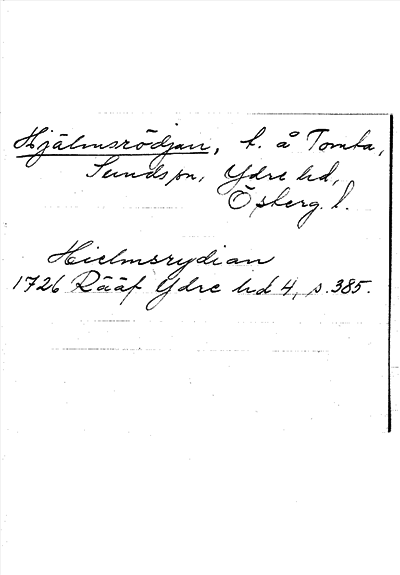 Hjälmsrödjan, t. å Tomta,
Sunds sn, Ydre hd,
Östergl. l.
Hielmsrydian
1726 Rääf Ydre hd 4, s. 385.